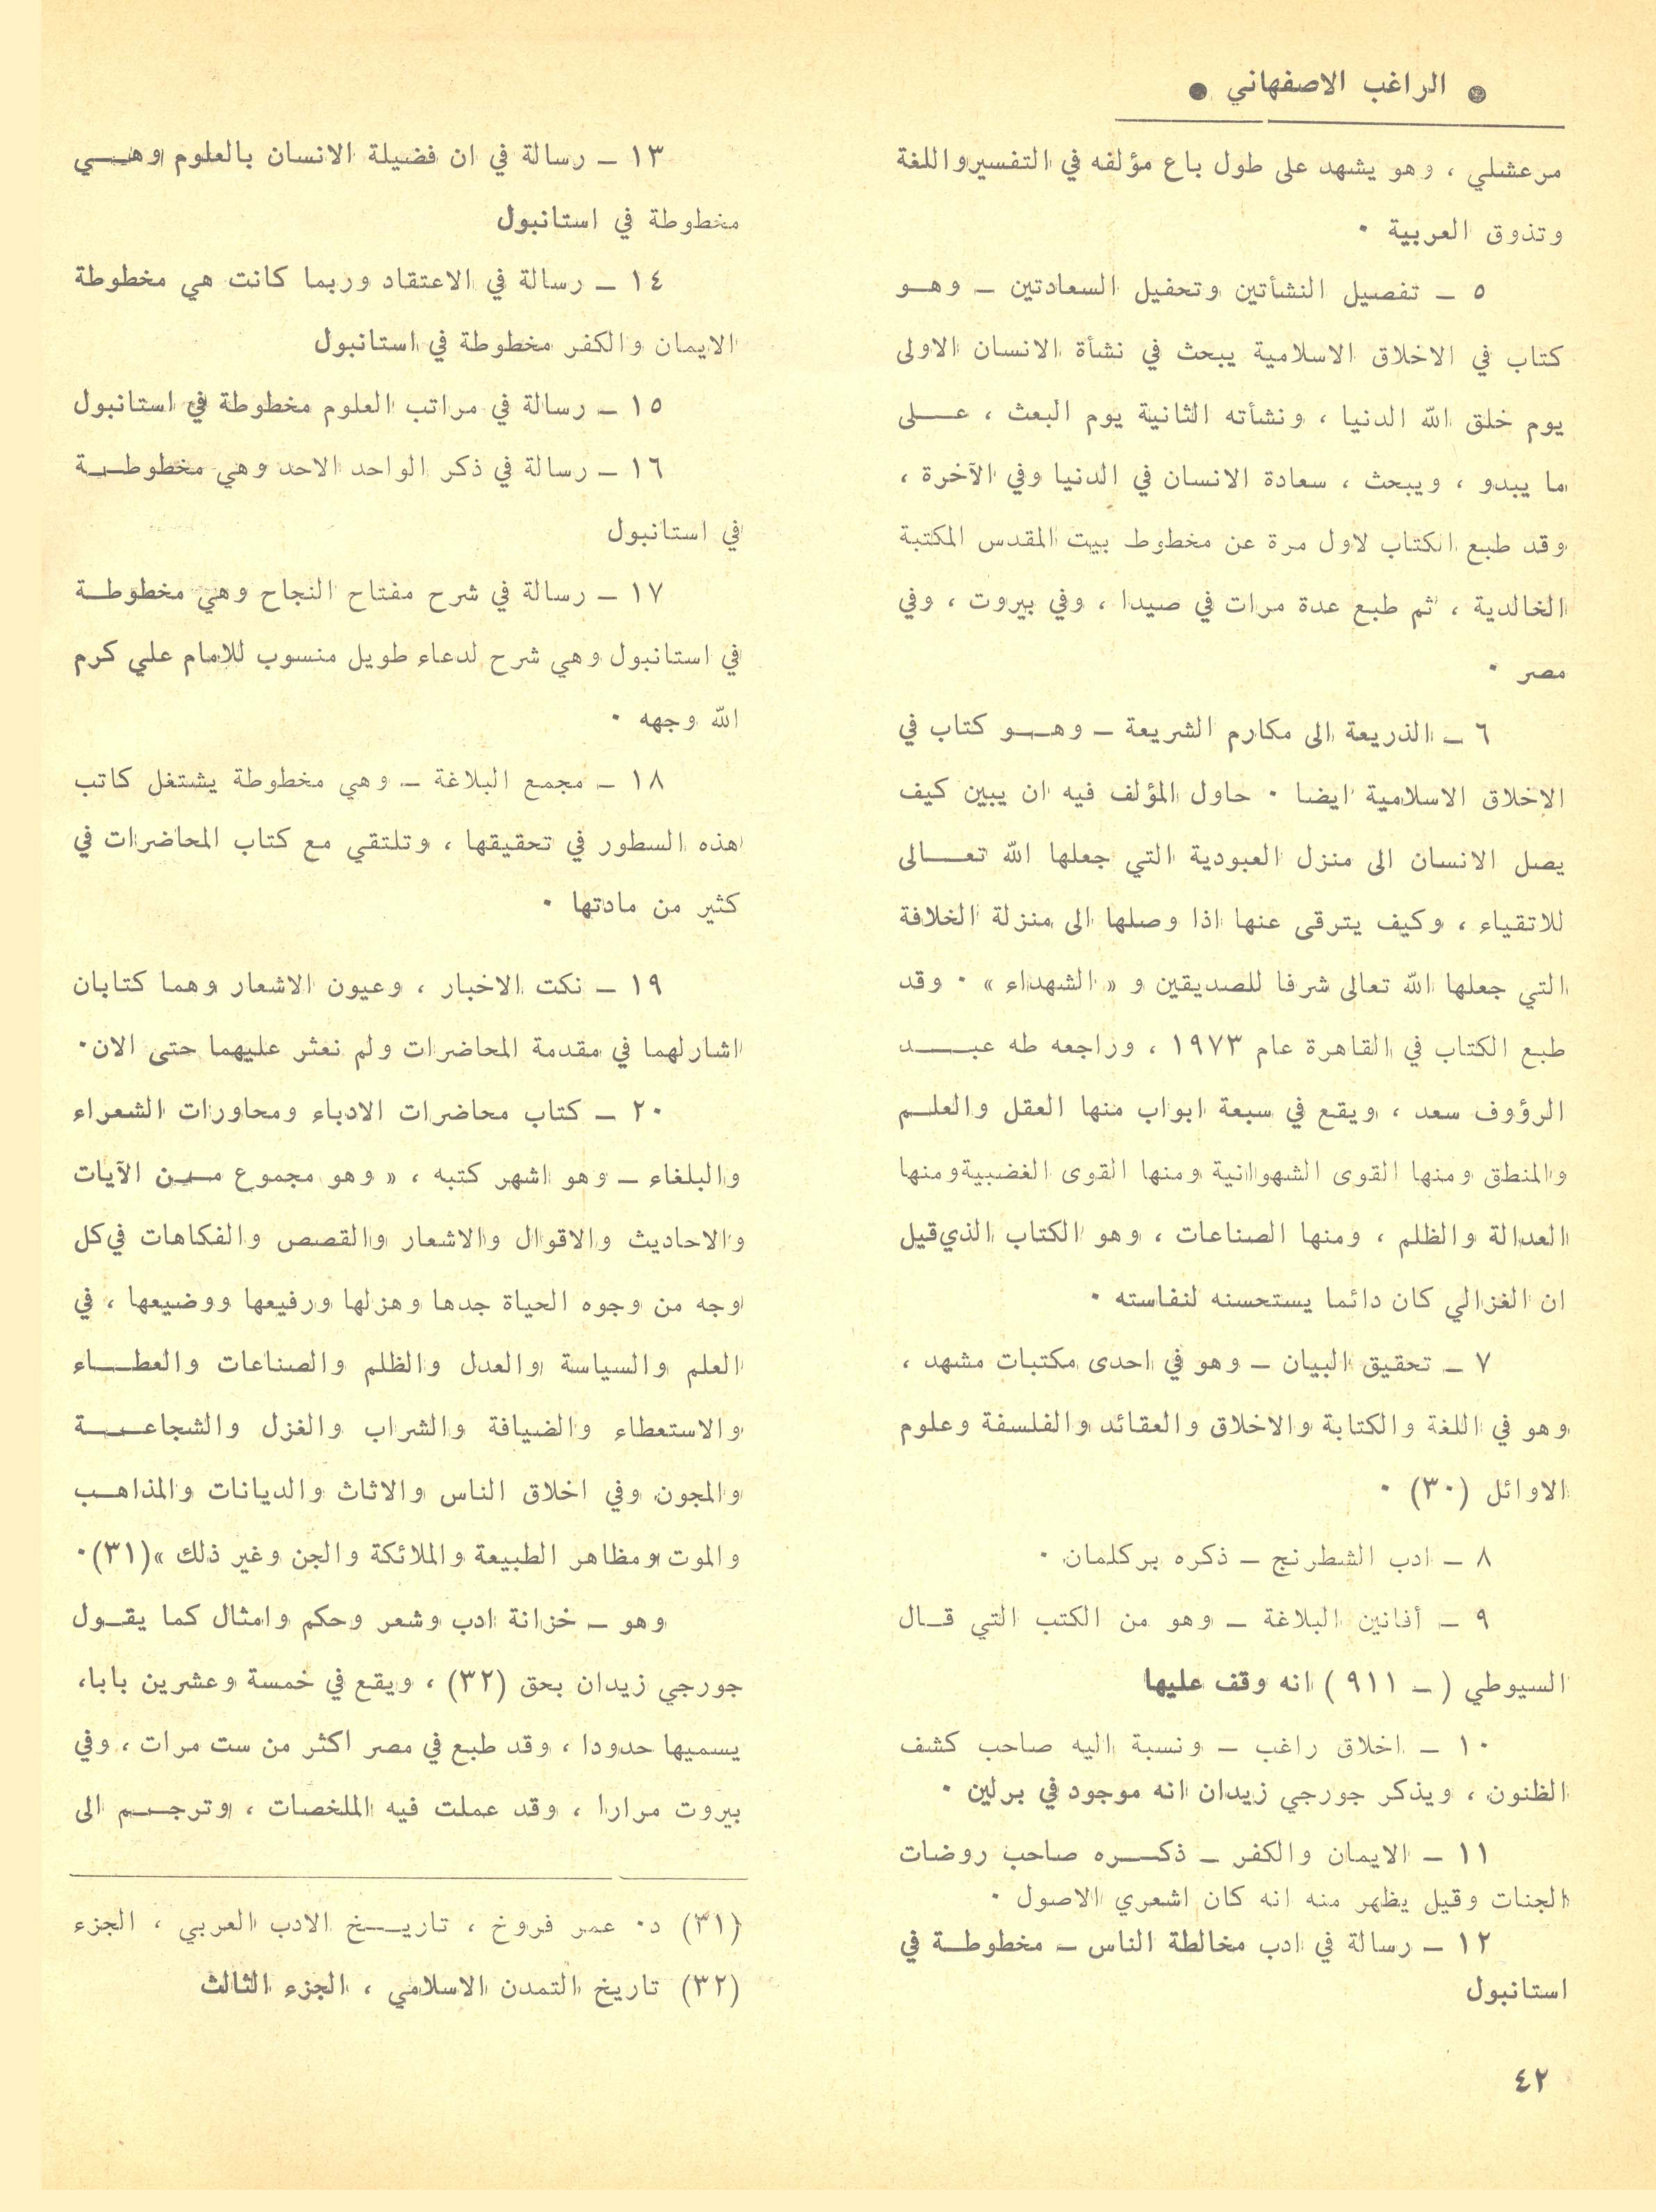 ● الراغب الاصفهاني ●
مرعشلي ، وهو يشهد على طول باع مؤلفه في التفسير واللغة
وتذوق العربية ٠
٥ ـ تفصيل النشأتين وتحفيل السعادتين ـ وهو
كتاب في الاخلاق الاسلامية يبحث في نشأة الانسان الاولى
يوم خلق الله الدنيا ، ونشأته الثانية يوم البعث ، على
ما يبدو ، ويبحث ، سعادة الانسان في الدنيا وفي الآخرة ،
وقد طبع الكتاب لاول مرة عن مخطوط بيت المقدس المكتبة
الخالدية ، ثم طبع عدة مرات في صيدا ، وفي بيروت ، وفي
مصر ٠
٦ ـ الذريعة الى مكارم الشريعة ـ وهو كتاب في
الاخلاق الاسلامية ايضا ٠ حاول المؤلف فيه ان يبين كيف
يصل الانسان الى منزل العبودية التي جعلها الله تعالى
للاتقياء ، وكيف يترقى عنها اذا وصلها الى منزلة الخلافة
التي جعلها الله تعالى شرفا للصديقين و « الشهداء » ٠ وقد
طبع الكتاب في القاهرة عام ١٩٧٣ ، وراجعه طه عبد
الرؤوف سعد ، ويقع في سبعة ابواب منها العقل والعلم
والمنطق ومنها القوى الشهوانية ومنها القوى الغضبية ومنها
العدالة والظلم ، ومنها الصناعات ، وهو الكتاب الذي قيل
ان الغزالي كان دائما يستحسنه لنفاسته ٠
٧ ـ تحقيق البيان ـ وهو في احدى مكتبات مشهد ،
وهو في اللغة والكتابة والاخلاق والعقائد والفلسفة وعلوم
الاوائل (٣٠) ٠
٨ ـ ادب الشطرنج ـ ذكره بركلمان ٠
٩ ـ أفانين البلاغة ـ وهو من الكتب التي قال
السيوطي ( ـ ٩١١ ) انه وقف عليها
١٠ ـ اخلاق راغب ـ ونسبة اليه صاحب كشف
الظنون ، ويذكر جورجي زيدان انه موجود في برلين ٠
١١ ـ الايمان والكفر ـ ذكره صاحب روضات
الجنات وقيل يظهر منه انه كان اشعري الاصول ٠
١٢ ـ رسالة في ادب مخالطة الناس ـ مخطوطة في
استانبول
١٣ ـ رسالة في ان فضيلة الانسان بالعلوم وهي
مخطوطة في استانبول
١٤ ـ رسالة في الاعتقاد وربما كانت هي مخطوطة
الايمان والكفر مخطوطة في استانبول
١٥ ـ رسالة في مراتب العلوم مخطوطة في استانبول
١٦ ـ رسالة في ذكر الواحد الاحد وهي مخطوطة
في استانبول
١٧ ـ رسالة في شرح مفتاح النجاح وهي مخطوطة
في استانبول وهي شرح لدعاء طويل منسوب للامام علي كرم
الله وجهه ٠
١٨ ـ مجمع البلاغة ـ وهي مخطوطة يشتغل كاتب
هذه السطور في تحقيقها ، وتلتقي مع كتاب المحاضرات في
كثير من مادتها ٠
١٩ ـ نكت الاخبار ، وعيون الاشعار وهما كتابان
اشار لهما في مقدمة المحاضرات ولم نعثر عليهما حتى الان٠
٢٠ ـ كتاب محاضرات الادباء ومحاورات الشعراء
والبلغاء ـ وهو اشهر كتبه ، « وهو مجموع من الآيات
والاحاديث والاقوال والاشعار والقصص والفكاهات في كل
وجه من وجوه الحياة جدها وهزلها ورفيعها ووضيعها ، في
العلم والسياسة والعدل والظلم والصناعات والعطاء
والاستعطاء والضيافة والشراب والغزل والشجاعة
والمجون وفي اخلاق الناس والاثاث والديانات والمذاهب
والموت ومظاهر الطبيعة والملائكة والجن وغير ذلك »(٣١)٠
وهو ـ خزانة ادب وشعر وحكم وامثال كما يقول
جورجي زيدان بحق (٣٢) ، ويقع في خمسة وعشرين بابا،
يسميها حدودا ، وقد طبع في مصر اكثر من ست مرات ، وفي
بيروت مرارا ، وقد عملت فيه الملخصات ، وترجم الى
(٣١) د٠ عمر فروخ ، تاريخ الادب العربي ، الجزء
(٣٢) تاريخ التمدن الاسلامي ، الجزء الثالث
٤٢